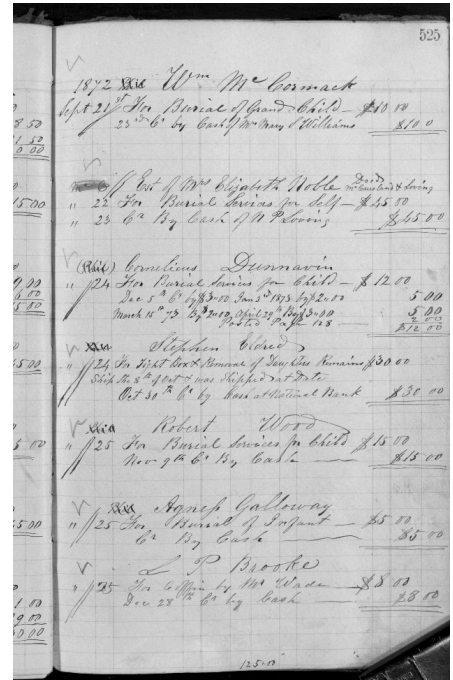 525
1872 Paid Wm McCormack
Sept 21st For Burial of Grand Child — $10 00
23rd Cr by Cash of Mrs Mary Williams $10 0
Est of Mrs Elizabeth Noble
" 22 For Burial Services for Self — $45 00
" 23 Cr By Cash of N P Loving $45 00
(Paid) Cornelieus Dunnavin
" 24 For Burial Services for Child — $12 00
Dec 5th Cr by $3 00 Jan 2nd 1873 by $2 00 5 00
March 15th 73 By $2 00 April 29th By $3 00 5 00
Posted Page 128 2 00
$12 00
Stephen Eldred
" 24 For Tight Box & Removal of Remains $30 00
Ship the 8th of Oct & was Shipped at Date
Oct 30th Cr by Cash at National Bank $30 00
Paid Robert Wood
" 25 For Burial Services for Child $15 00
Nov 9th Cr By Cash $15 00
Paid Agness Galloway
" 25 For Burial of Infant — $5 00
Cr By Cash $5 00
L P Brooke
" 25 For Coffin by Mr Wade — $8 00
Dec 28th Cr by Cash $8 00
125.00
8 50
1 50
0 00
15 00
9 00
6 00
5 00
45 00
5 00
15 00
1 00
9 00
0 00